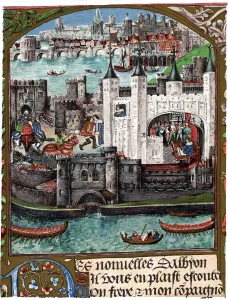 Des nouuelles dalbyon
Sil vous en plaist escoute
mon frere & mon compaigno